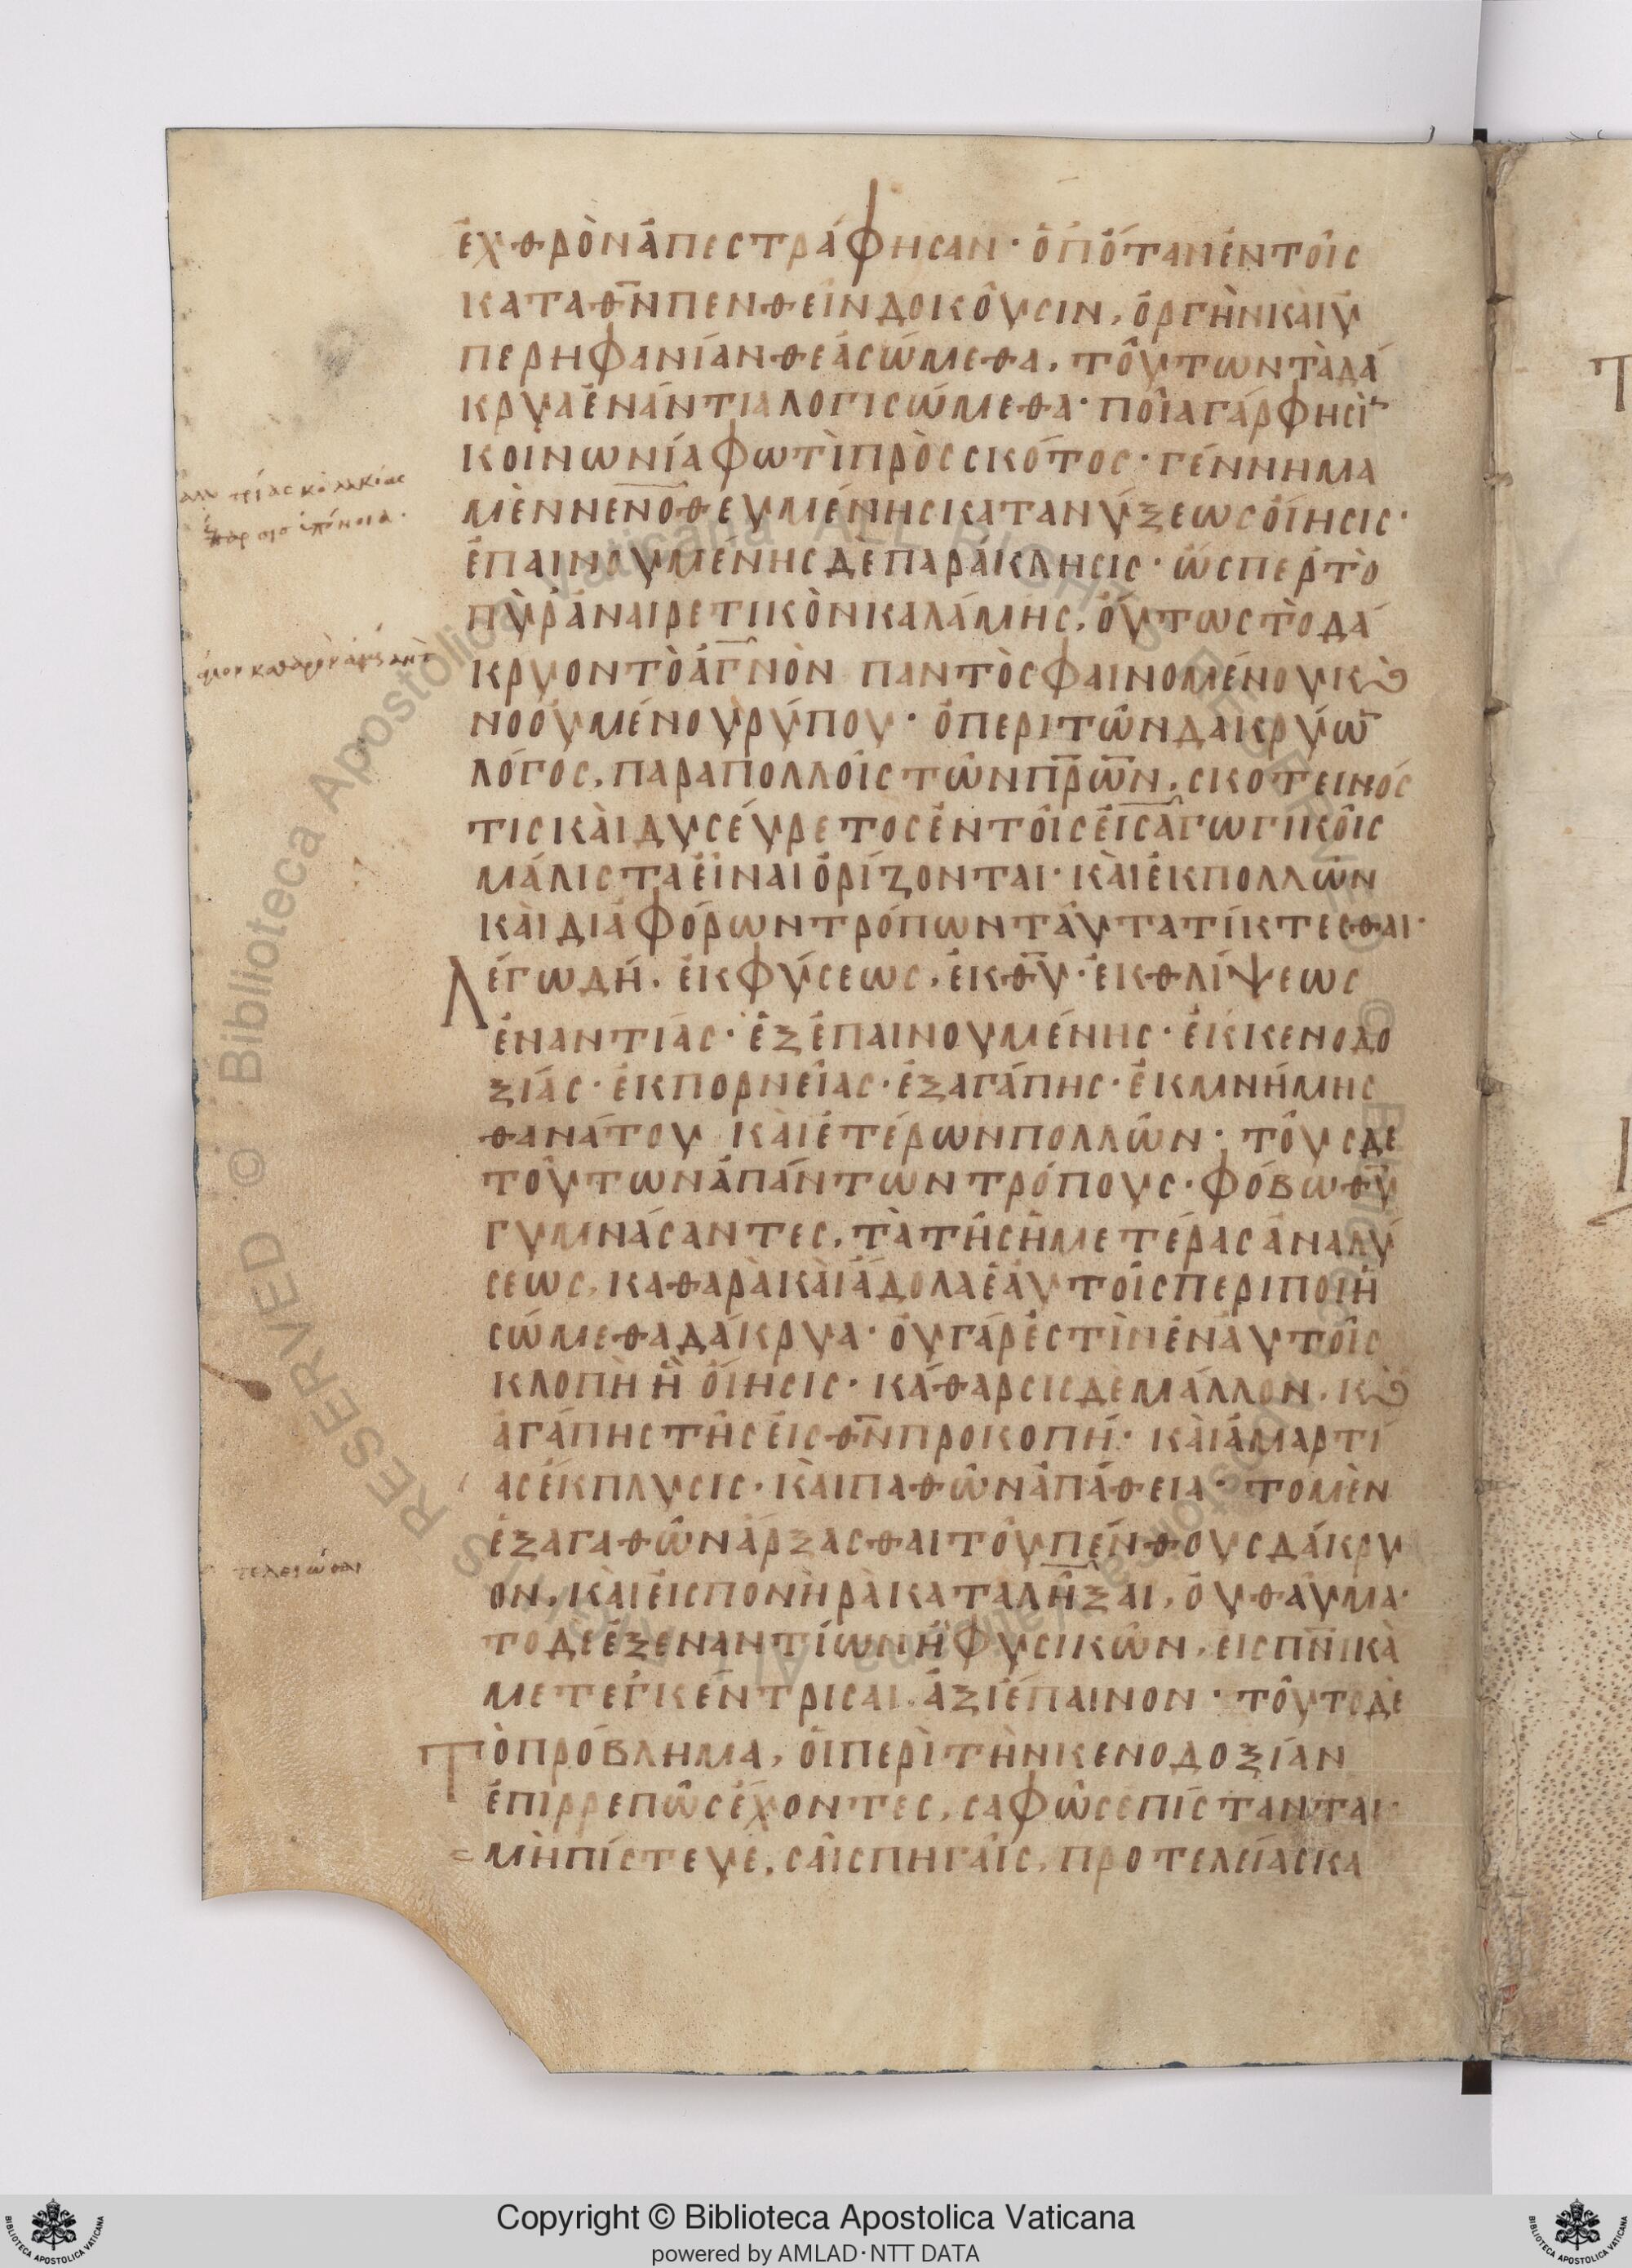 ἐχθρὸν ἀπεστράφησαν· ὁπόταν ἐν τοῖς
κατὰ θ̅ν̅ πενθεῖν δοκοῦσιν, ὀργὴν καὶ ὑ
περηφανίαν θεασώμεθα, τούτων τὰ δά
κρυα ἐνάντια λογισώμεθα· ποία γάρ φησὶ
κοινωνία φωτὶ πρὸς σκότος· γέννημα
μὲν νενοθευμένης κατανύξεως οἴησις·
ἐπαινουμένης δὲ παράκλησις· ὥσπερ τὸ
πῦρ ἀναιρετικὸν καλάμης, οὕτως τὸ δά
κρυον τὸ ἁγνὸν παντὸς φαινομένου κ̀
νοουμένου ῥύπου· ὁ περὶ τῶν δακρύω̅
λόγος, παρὰ πολλοῖς τῶν π̅ρ̅ω̅ν̅, σκοτεινός
τις καὶ δυσεύρετος ἐν τοῖς εἰσαγωγικοῖς
μάλιστα εἶναι ὁρίζονται· καὶ ἐκ πολλῶν
καὶ διαφόρων τρόπων ταῦτα τίκτεσθαι·
Λέγω δή, ἐκ φύσεως, ἐκ θ̅υ̅· ἐκ θλίψεως
ἐναντίας· ἐξ ἐπαινουμένης· ἐκ κενοδο
ξίας· ἐκ πορνείας· ἐξ ἀγάπης· ἐκ μνήμης
θανάτου καὶ ἑτέρων πολλῶν· τοὺς δε
τούτων ἁπάντων τρόπους· φόβω θ̅υ̅
γυμνάσαντες, τὰ τῆς ἡμετέρας ἀναλύ
σεως, καθαρὰ καὶ ἄδολα ἑαυτοῖς περιποιη
σώμεθα δάκρυα· οὐ γάρ ἐστιν ἐν αὐτοῖς
κλοπὴ ἢ οἴησις· κάθαρσις δὲ μάλλον, κ̀
ἀγάπης τῆς εἰς θ̅ν̅ προκοπή· καὶ ἁμαρτί
ας ἔκπλυσις· καὶ παθῶν ἀπάθεια· τὸ μὲν
ἐξ ἀγαθῶν ἄρξασθαι τοῦ πένθους δάκρυ
ον, καὶ εἰς πονηρὰ καταλῆξαι, οὐ θαῦμα·
τὸ δε ἐξ ἐναντίων ἢ φυσικῶν, εις π̅ν̅ικὰ
μετεγκεντρισαι ἀξιέπαινον· τοῦτο δὲ
Τὸ πρόβλημα, οἱ περὶ τὴν κενοδοξίαν
ἐπιρρεπῶς ἔχοντες, σαφῶς ἐπίστανται·
μὴ πίστευε, σαῖς πηγαῖς, πρὸ τελείας κα
τελειωθαι
Copyright © Biblioteca Apostolica Vaticana
powered by AMLAD·NTT DATA